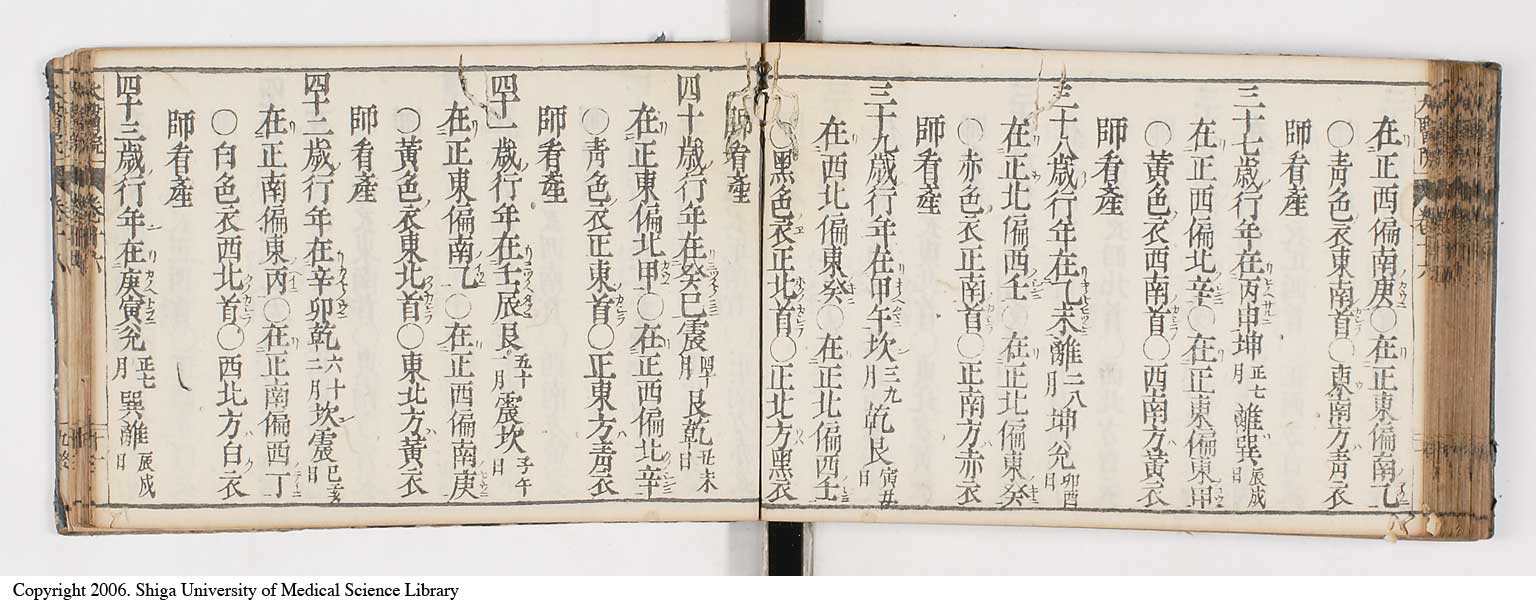 在正西偏南庚〇在正東偏南乙
〇青色衣東南首〇東南方青衣
師看產
三十七歲行年在丙申坤正七月離巽辰戌日
在正西偏北辛〇在正東偏東甲
〇黃色衣西南首〇西南方黃衣
師看產
三十八歲行年在乙未離二八月坤兊卯酉日
在正北偏西壬〇在正北偏東癸
〇赤色衣正南首〇正南方赤衣
師看產
三十九歲行年在甲午坎三九月乾艮寅丑日
在西北偏東癸〇在正北偏西壬
〇黑色衣正北首〇正北方黑衣
師看產
四十歲行年在癸巳震四十月艮乾丑未日
在正東偏北甲〇在正西偏北辛
〇青色衣正東首〇正東方青衣
師看產
四十一歲行年在壬辰艮五十一月震坎子午日
在正東偏南乙〇在正西偏南庚
〇黃色衣東北首〇東北方黃衣
師看產
四十二歲行年在辛卯乾六十二月坎震巳亥日
在正南偏東丙〇在正南偏西丁
〇白色衣西北首〇西北方白衣
師看產
四十三歲行年在庚寅兊正七月巽離辰戌日
Copyright 2006. Shiga University of Medical Science Library